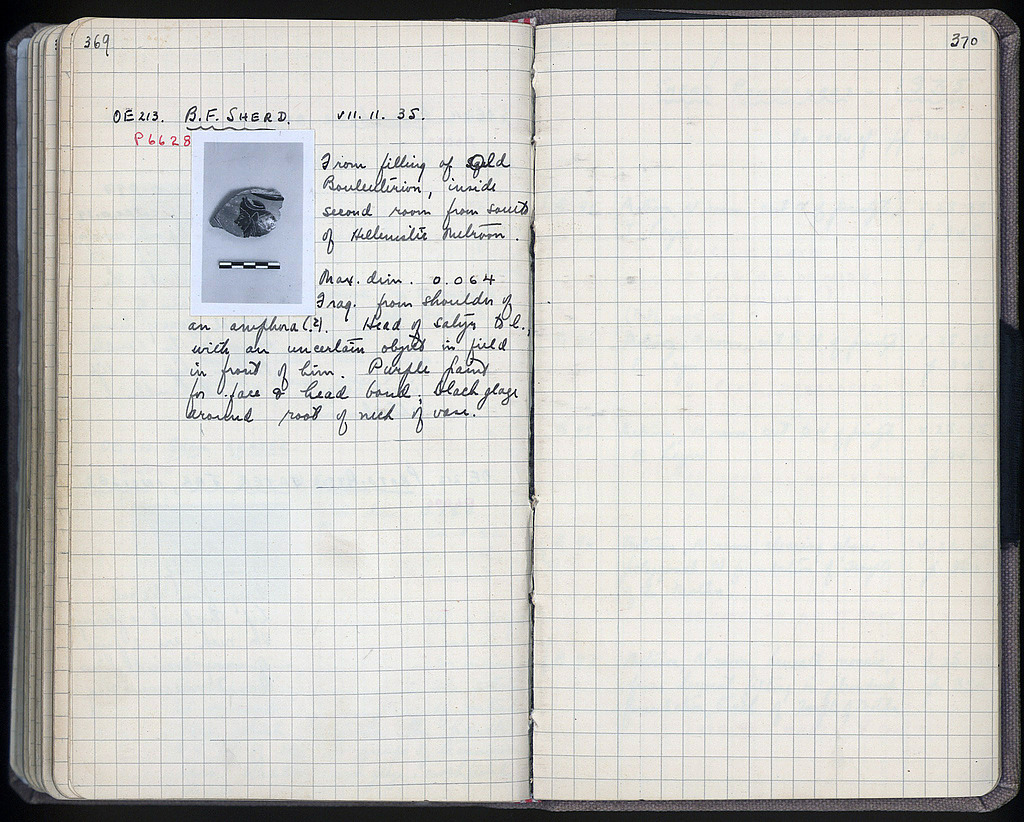 369
370
OE 213. B.F. SHERD. VII. 11. 35.
P6628
From filling of Old
Bouleuterion, inside
second room from south
of Hellenistic Metroon.
Max. dim. 0.064
Frag. from shoulder of
an amphora (?). Head of satyr to l.,
with an uncertain object in field
in front of him. Purple paint
for face & head band, black glaze
around root of neck of vase.